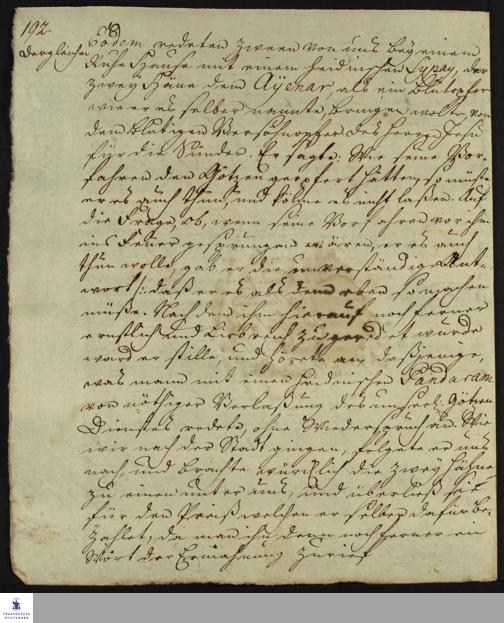 192.
Dergleichen
Eodem, redeten zween von uns bey einem
Ruhe Hause mit einen heidnischen Supay, der
zwey Häne dem Ayenar, als ein Blutopfer
wie er es selber nannte, bringen wolte, von
dem blutigen Versöhnopfer des Herrn Jesu
für die Sünder. Er sagte: Wie seine Vor-
fahren den Götzen geopfert hätten, so müste
er es auch thun, und könne es nicht laßen. Auf
die Frage, ob, wenn seine Vorfahren vor ihm
ins Feuer gesprungen wären, er es auch
thun wolle, gab er die unverständige Ant-
wort: daß er es als denn eben so machen
müße. Nachdem ihm hierauf noch ferner
ernstlich und liebreich zugeredet wurde
ward er stille, und hörete an, dasjenige,
was mann mit einen heidnischen Pandaram
von nöthiger Verlaßung des Götzen
Dienstes redete, ohne Wiederspruch an. Wie
wir nach der Stadt gingen, folgete er uns
nach, und brachte würcklich die zwey Hähne
zu einem unter uns, und überließ sie
für den Preiß welchen er selber dafür be-
zahlet, da man ihn denn noch ferner ein
Wort der Ermahnung zurief
FRANCKESCHE
STIFTUNGEN